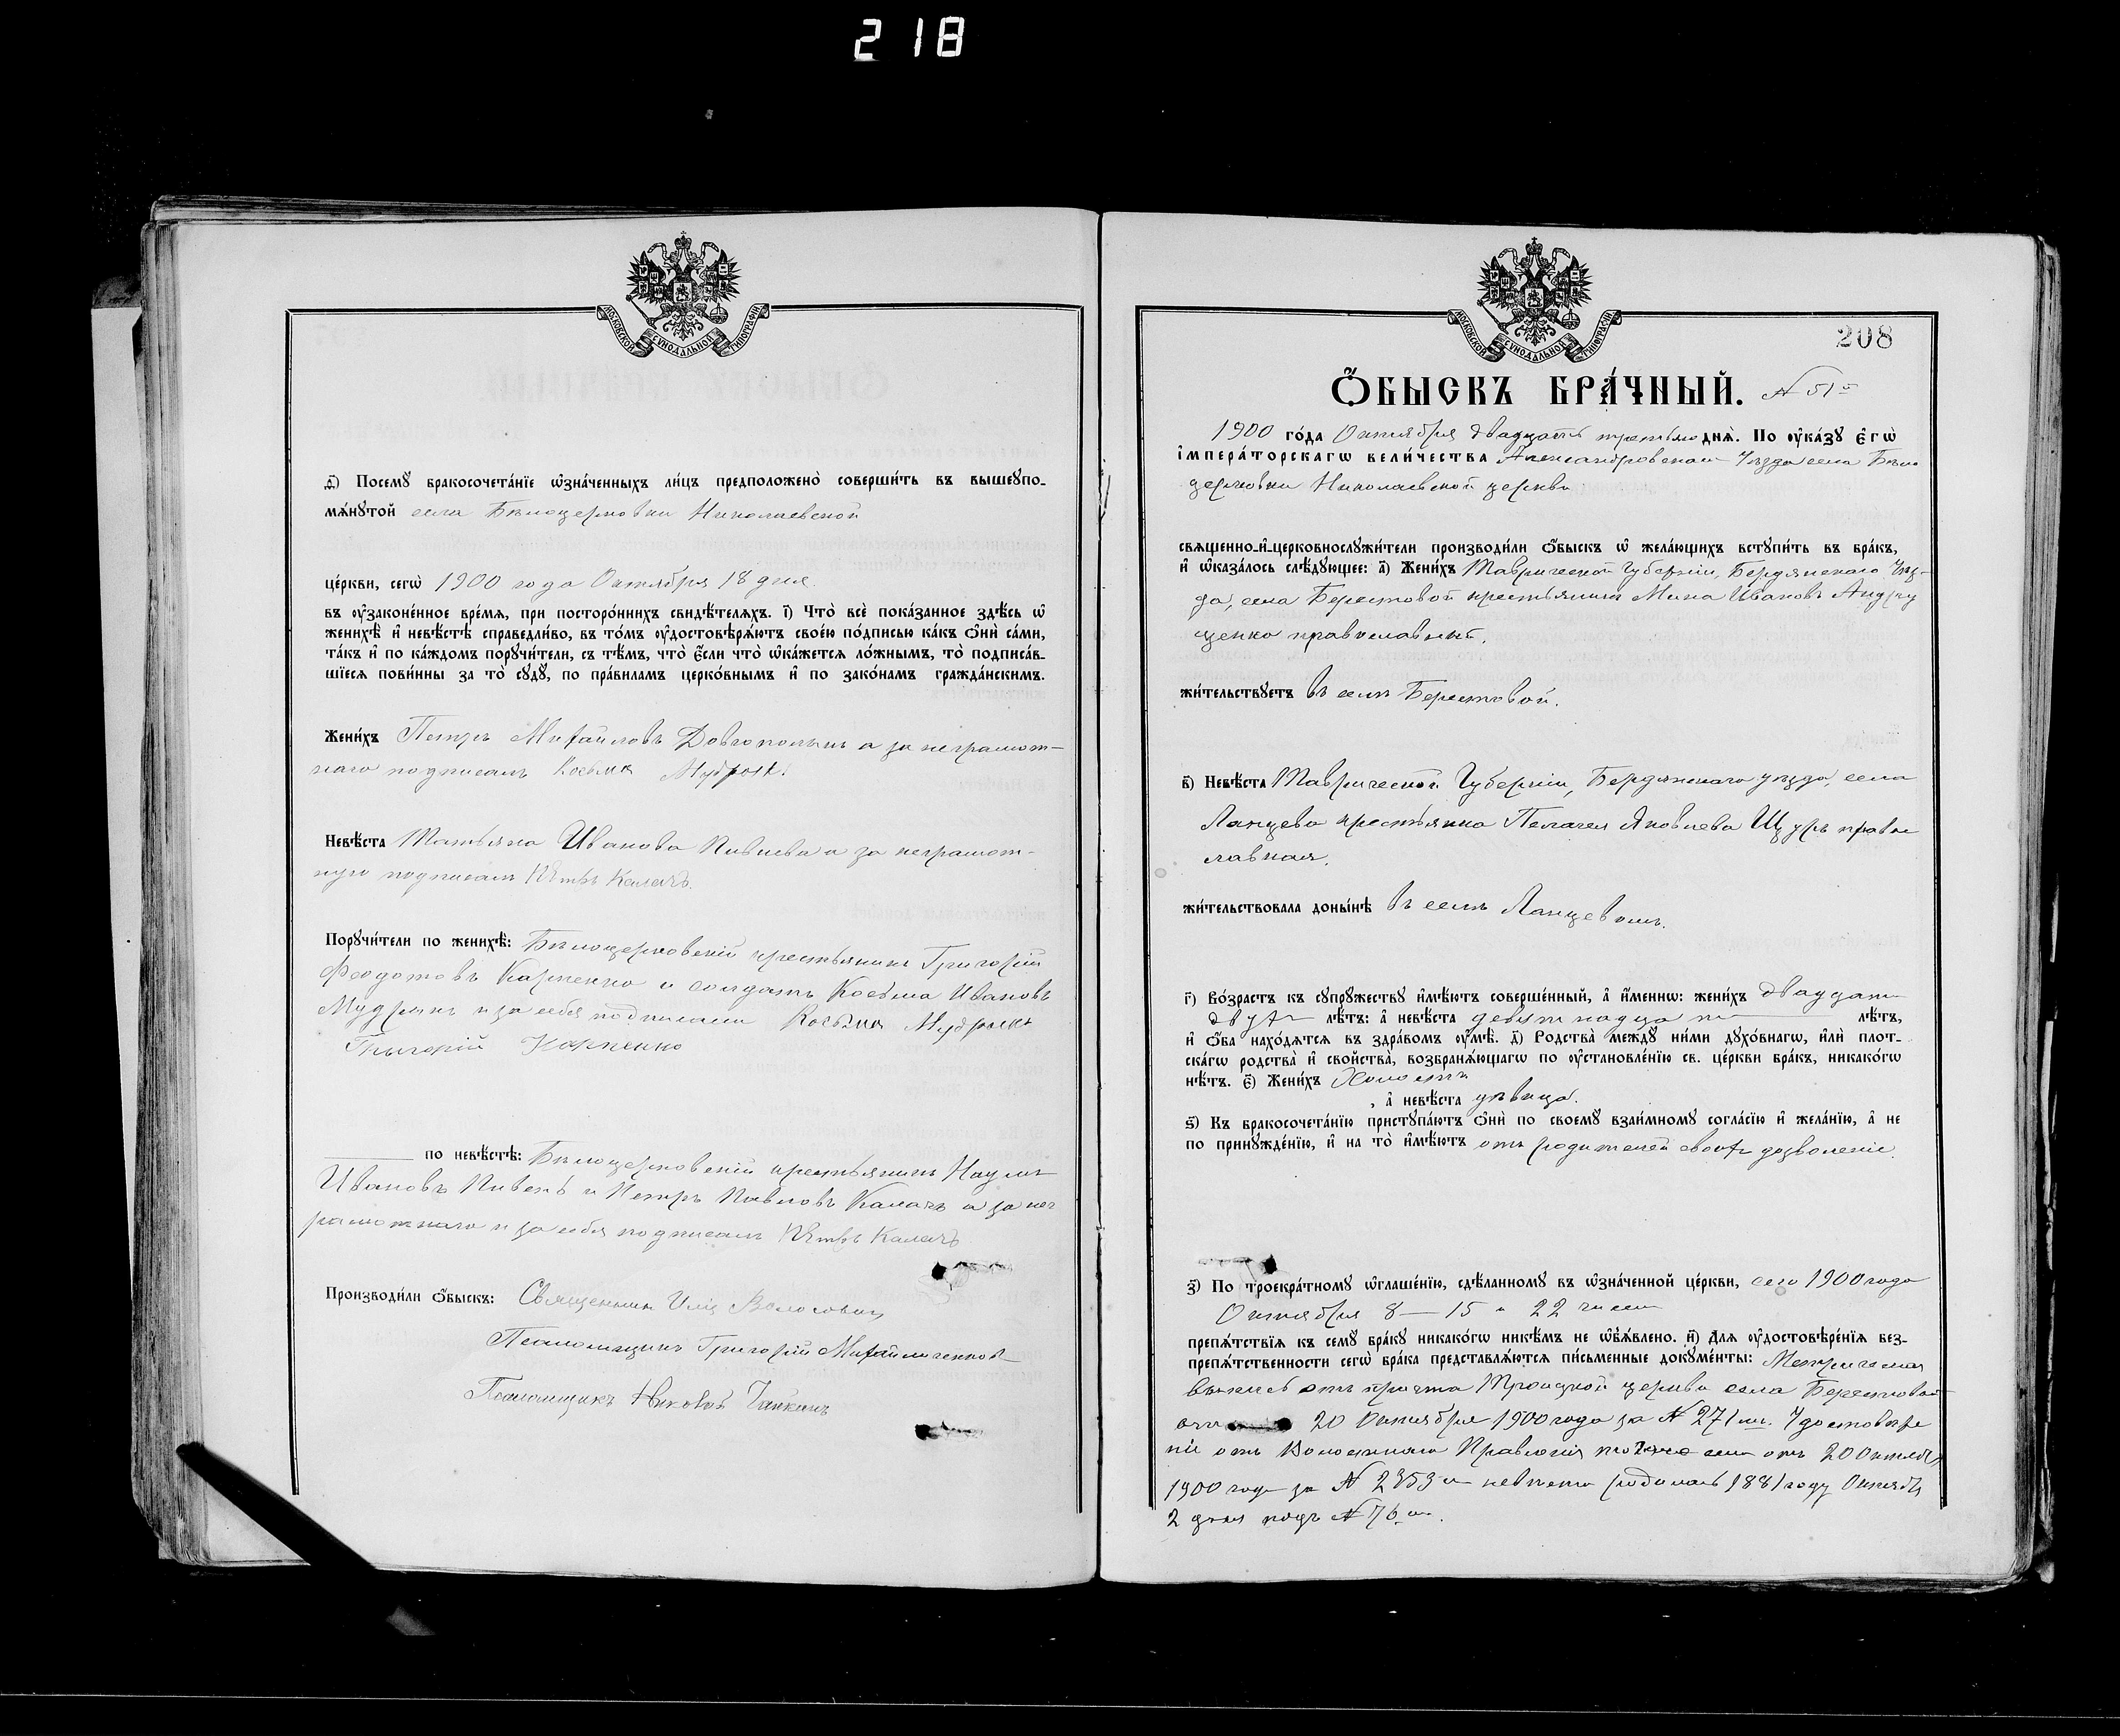 218
МОСКОВСКОЙ СУНОДАЛЬНОЙ ТИПОГРАФІИ
д҃) Посемꙋ бракосочетанїе ѡзначенныхъ лицъ предположено совершить въ вышеꙋпо-
мѧнꙋтой села Бѣлоцерковки Николаевской
церкви, сегѡ 1900 года Октября 18 дня
въ ᲂу҆законенное время, при постороннихъ свидѣтеляхъ. і҃) Что все показанное здѣсь ѡ
женихѣ и невѣстѣ справедливо, въ томъ ᲂу҆достовѣряютъ своею подписью какъ они сами,
такъ и по каждомъ порꙋчители, съ тѣмъ, что если что ѡкажется ложнымъ, то подписав-
шїеся повинны за то сꙋдꙋ, по правиламъ церковнымъ и по законамъ гражданскимъ.
Женихъ Петръ Михаиловъ а за неграмот-
наго подписалъ Косьма
Невѣста Татьяна Иванова а за неграмот-
ную подписалъ Пётръ Калачъ
Порꙋчители по женихѣ: Бѣлоцерковскій крестьянинъ Григорій
Феодотовъ Карпенко и солдатъ Косьма Ивановъ
и за себя подписали Косьма
Григорій Карпенко
по невѣстѣ: Бѣлоцерковскій крестьянинъ Наумъ
Ивановъ Пивень и Петръ Павловъ Калачъ а за нег
рамотнаго и за себя подписалъ Пётръ Калачъ
Производили ѡбыскъ: Священникъ Илія
Псаломщикъ Григорій Михайличенков
Псаломщикъ Николай Чайкинъ
МОСКОВСКОЙ СУНОДАЛЬНОЙ ТИПОГРАФІИ
208
Ѻбыскъ брачный. № 51й
1900 года Октября двадцать третьяго дня. По ᲂу҆казꙋ егѡ
императорскагѡ величества Александровскаго Уѣзда села Бѣло
церковки Николаевской церкви
священно-и-церковнослꙋжители производили ѡбыскъ ѡ желающихъ встꙋпить въ бракъ,
и ѡказалось слѣдꙋющее: а҃) Женихъ Таврической Губерніи, Бердянскаго Уѣз-
да, села Берестовой крестьянинъ Мина Ивановъ Андру
щенко православный.
жительствꙋетъ въ селѣ Берестовой.
в҃) Невѣста Таврической Губерніи, Бердянскаго уѣзда, села
Ланцева крестьянка Пелагея Яковлева Щуръ право
славная.
жительствовала донынѣ въ селѣ Ланцевомъ.
г҃) Возрастъ къ сꙋпрꙋжествꙋ имѣютъ совершенный, а именнѡ: женихъ двадцати
двухъ лѣтъ: а невѣста девятнадцати лѣтъ,
и ѡба находятся въ здравомъ ᲂу҆мѣ. д҃) Родства междꙋ ними дꙋховнагѡ, или плот-
скагѡ родства и свойства, возбраняющагѡ по ᲂу҆становленїю св. церкви бракъ, никакогѡ
нѣтъ. е҃) Женихъ Холостъ
, а невѣста дѣвица.
ѕ҃) Къ бракосочетанїю пристꙋпаютъ они по своемꙋ взаимномꙋ согласїю и желанїю, а не
по принꙋжденїю, и на то имѣютъ отъ родителей своихъ дозволеніе.
з҃) По троекратномꙋ ѡглашенїю, сдѣланномꙋ въ ѡзначенной церкви, сего 1900 года
Октября 8 — 15 и 22 числа
препятствїя къ семꙋ бракꙋ никакогѡ никѣмъ не ѡбъявлено. и҃) Для ᲂу҆достовѣренїя без-
препятственности сегѡ брака представляются письменные докꙋменты: Метрическая
выпись отъ причта Троицкой церкви села Берестовой
20 Октября 1900 года за № 271 мъ. Удостовѣре
ніе отъ Волостнаго Правленія отъ 20 Октября
1900 года за № 2353 м невѣста родилась 1881 году Октября
2 дня подъ № 76 м.